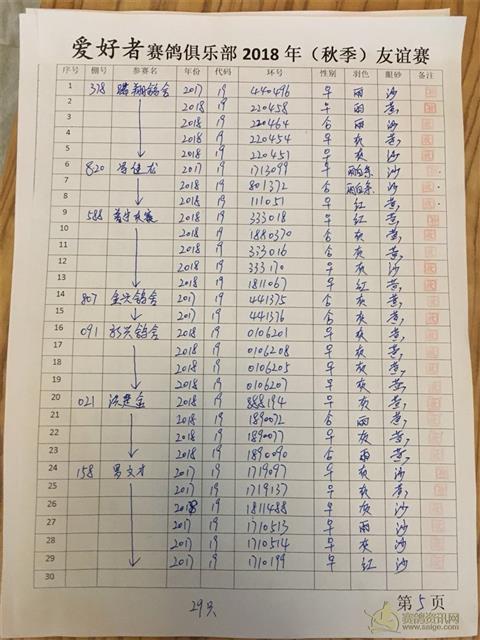 爱好者赛鸽俱乐部2018年（秋季）友谊赛
序号 棚号 参赛名 年份 代码 环号 性别 羽色 眼砂 备注
1 378 腾翔鸽舍 2017 19 440496 早 雨 沙
2 2018 19 220458 早 雨 黄
3 2018 19 220464 合 雨 沙
4 2018 19 220454 早 灰 沙
5 2018 19 220451 早 灰 沙
6 820 2017 19 1713099 早 沙
7 2018 19 801372 合 沙
8 2018 19 111051 早 红 黄
9 588 2018 19 333018 早 红 黄
10 2018 19 1880370 合 灰 黄
11 2018 19 333016 合 灰 黄
12 2018 19 333170 早 灰 沙
13 2018 19 1811067 早 红 黄
14 807 金兴鸽舍 2017 19 441375 合 灰 黄
15 2017 19 441376 合 灰 黄
16 091 鸽舍 2018 19 0106201 早 灰 黄
17 2018 19 0106208 早 灰 黄
18 2018 19 0106205 早 灰 黄
19 2018 19 0106207 早 灰 黄
20 021 2018 19 888194 早 灰 黄
21 2018 19 1890072 合 雨 黄
22 2018 19 1890077 早 灰 黄
23 2018 19 1890090 合 雨 黄
24 158 2017 19 1719097 早 灰 沙
25 2017 19 1719137 早 灰 黄
26 2018 19 1811488 早 灰 沙
27 2017 19 1710513 早 雨 沙
28 2017 19 1710514 早 灰 沙
29 2017 19 1710199 早 红 沙
30
29只
第5页
赛鸽资讯网
www.saige.com